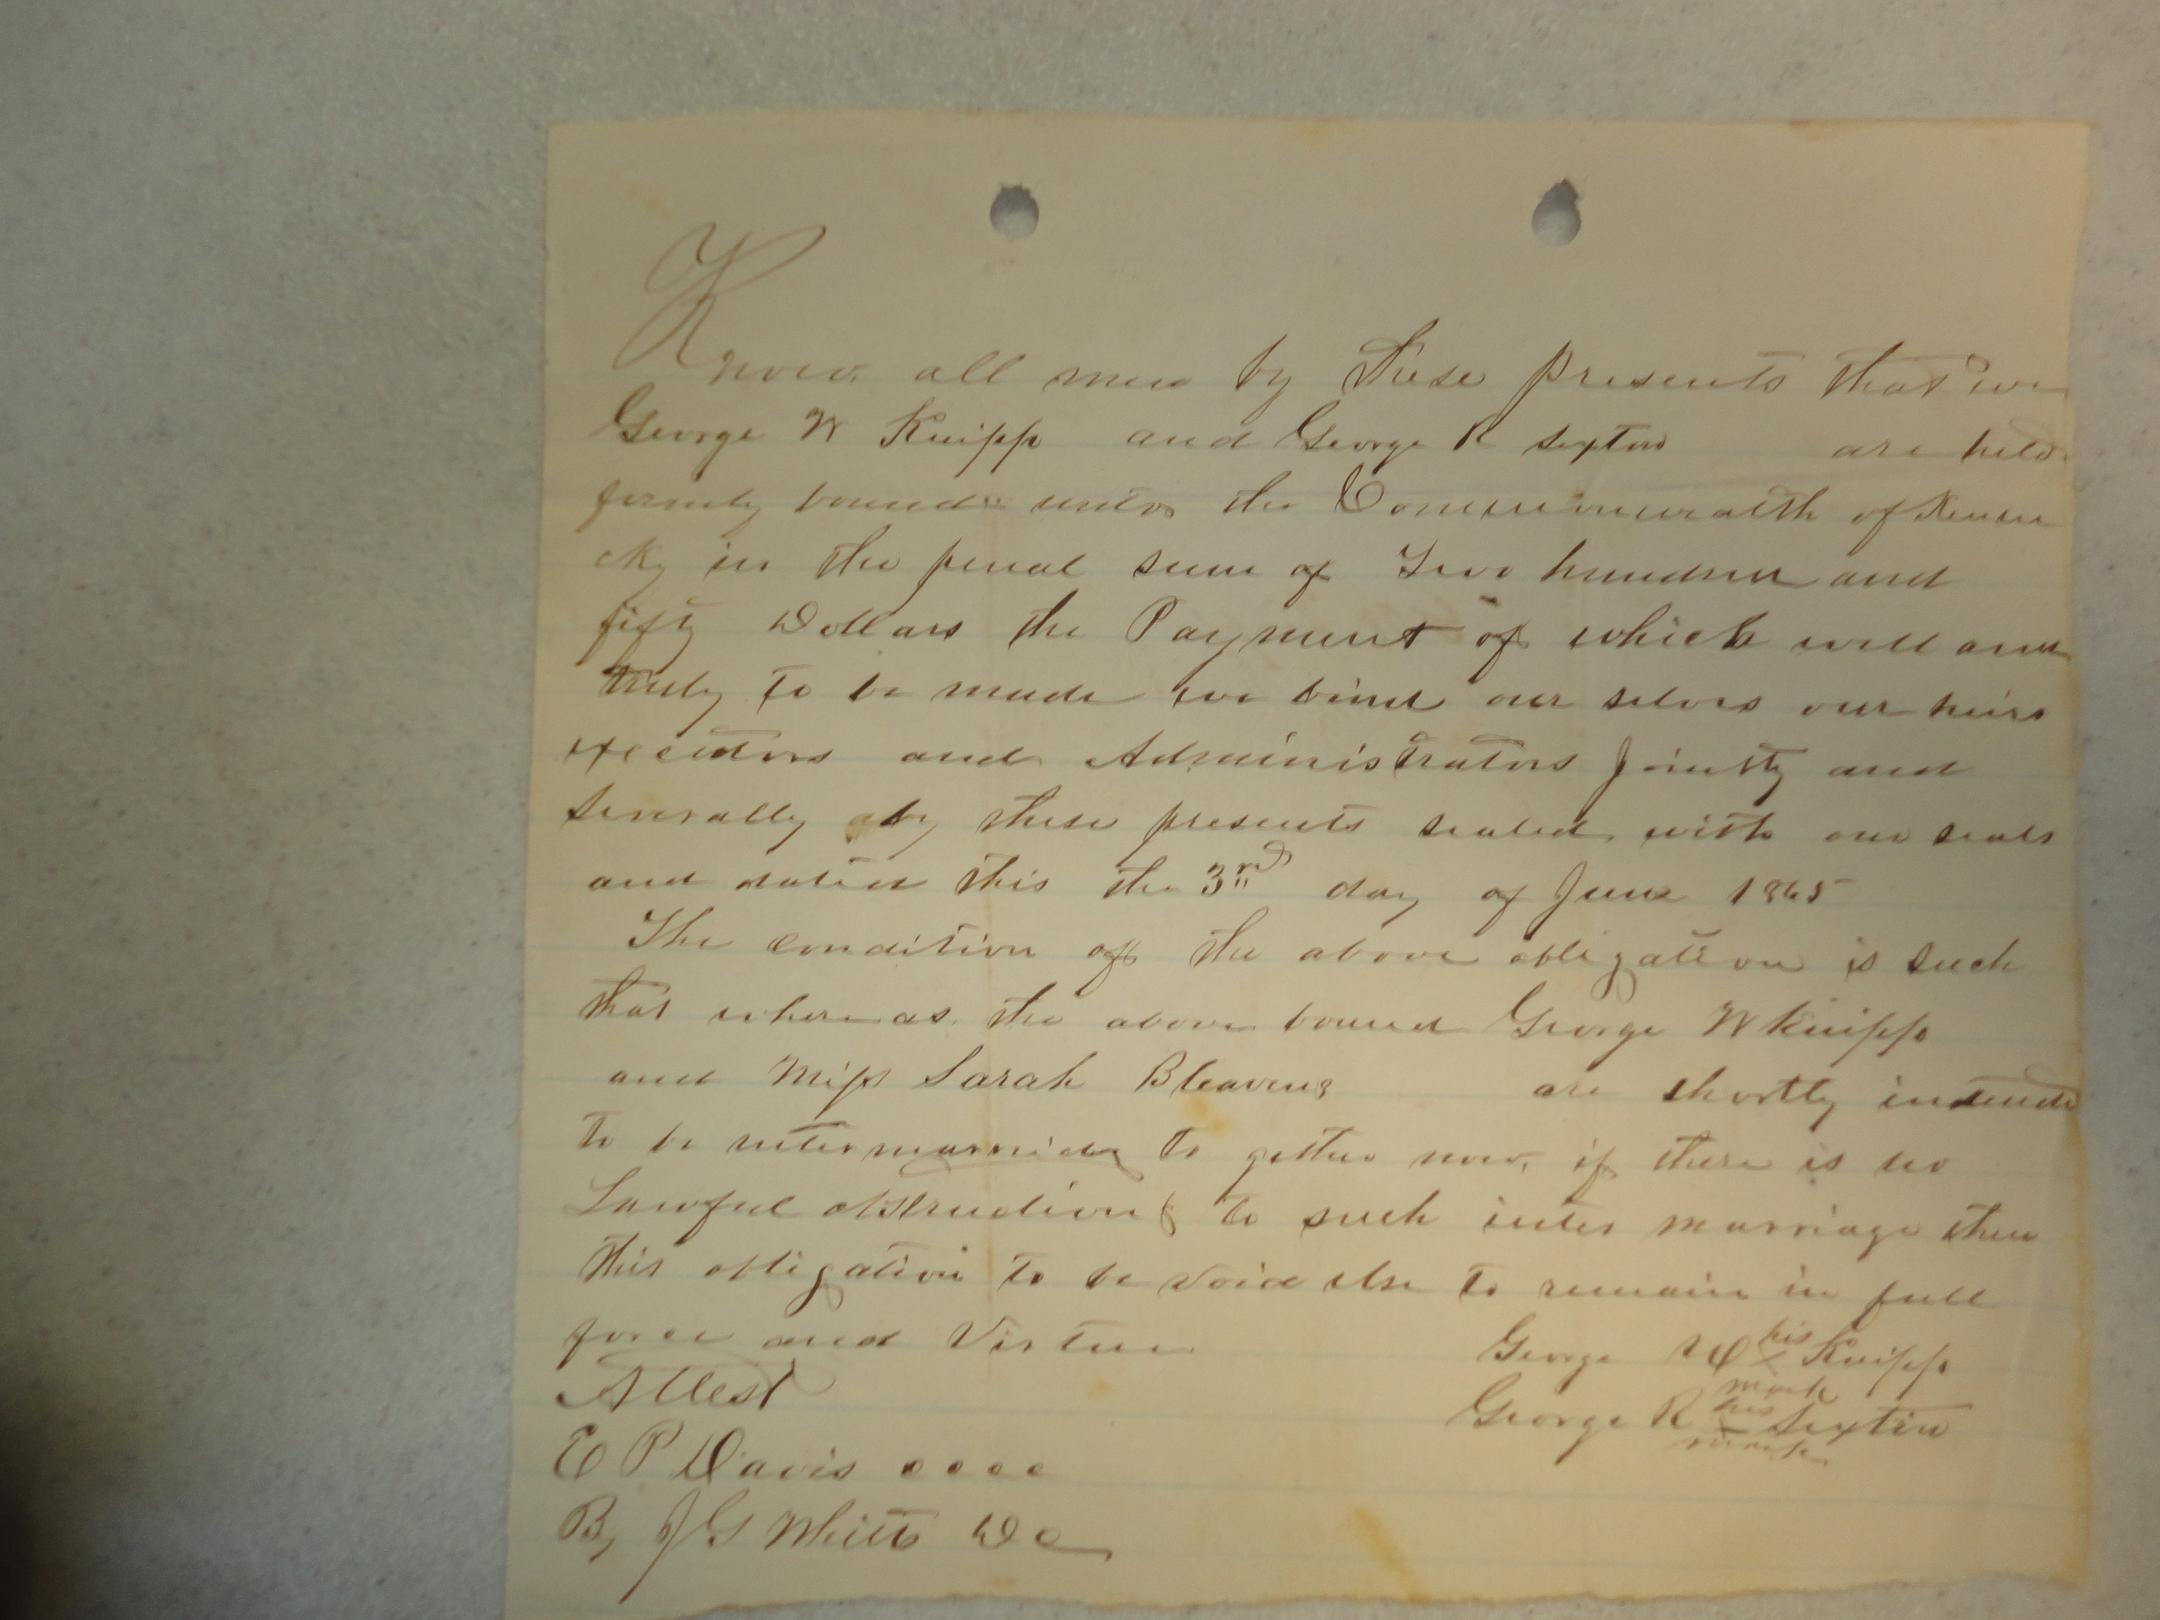 Know all men by these presents that we
George W Knipp and George R Sexton are held
firmly bound unto the Commonwealth of Kentu
cky in the penal sum of Two hundred and
fifty Dollars the Payment of which well and
truly to be made we bind our selves our heirs
executors and Administrators Jointly and
severally by these presents sealed with our seals
and dated this the 3rd day of June 1865
The condition of the above obligation is such
that where as the above bound George W Knipp
and Miss Sarah Bleavens are shortly intend
to be intermarried to gether now, if there is no
Lawful obstruction to such inter marriage then
this obligation to be void else to remain in full
force and Virtue
George W his x mark Knipp
George R his x mark Sextin
Attest
E P Davis c c c c
By J G Whitt D C